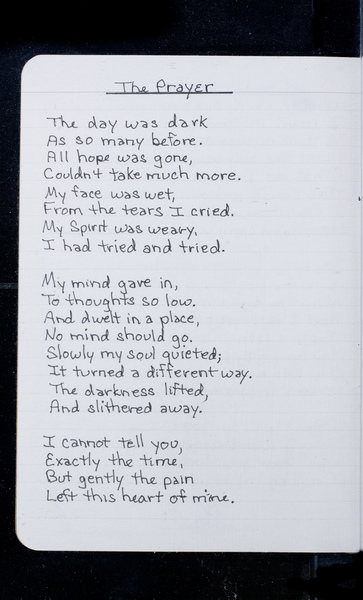 The Prayer
The day was dark
As so many before.
All hope was gone,
Couldn't take much more.
My face was wet,
From the tears I cried.
My Spirit was weary,
I had tried and tried.
My mind gave in,
To thoughts so low.
And dwelt in a place,
No mind should go.
Slowly my soul quieted;
It turned a different way.
The darkness lifted,
And slithered away.
I cannot tell you,
Exactly the time,
But gently the pain
Left this heart of mine.